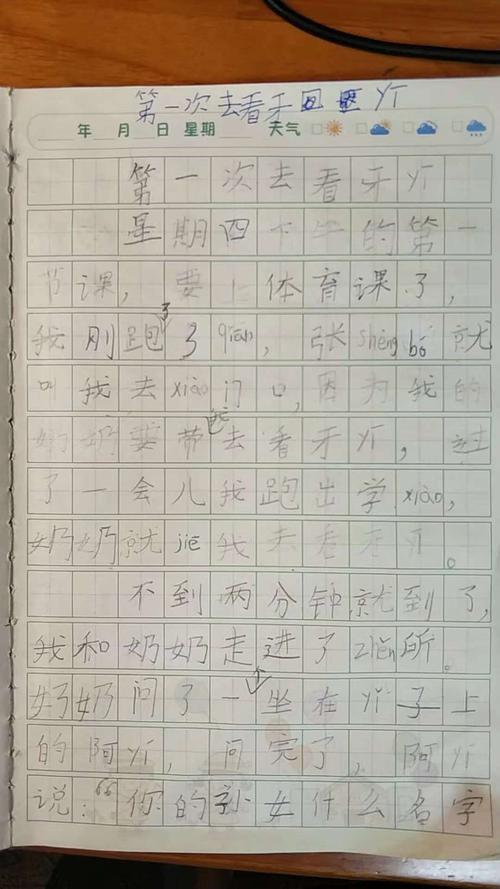 第一次去看牙 yī
年 月 日 星期 天气
第一次去看牙 yī
星期四下午的第一
节课，要上体育课了，
我刚跑了 qiān，张 shèng bó 就
叫我去 xiào 门口，因为我的
奶奶要带我去看牙 yī，过
了一会儿我跑出学 xiào，
奶奶就 jiē 我去看牙。
不到两分钟，就到了，
我和奶奶走进了 zhěn 所。
奶奶问了一个坐在 yǐ 子上
的阿 yí，问完了，阿 yí
说：“你的孙女什么名字